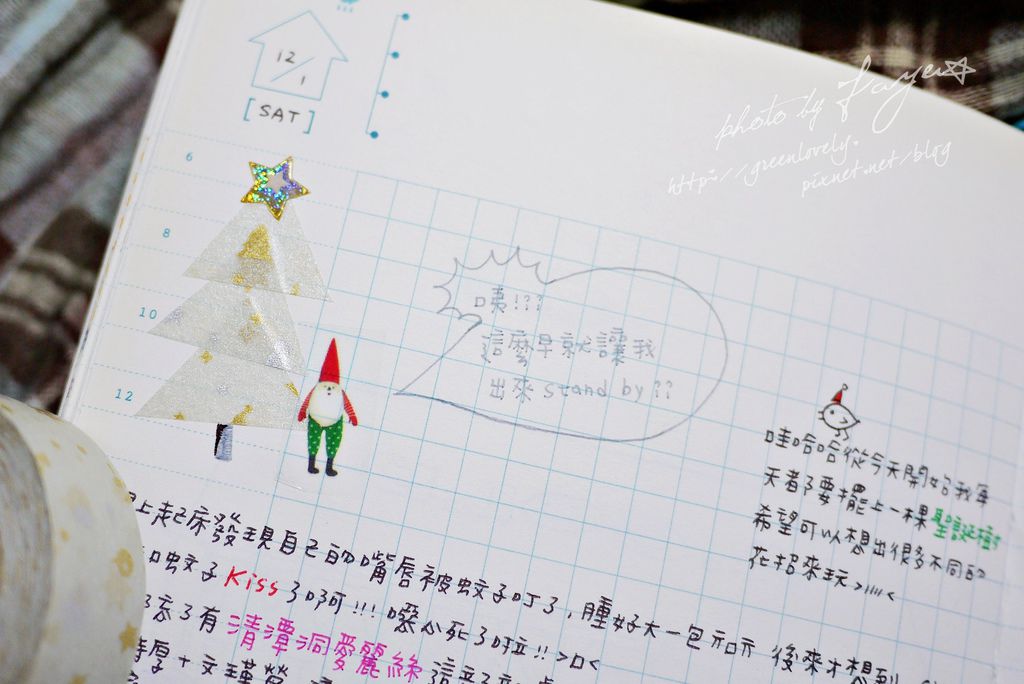 12/1
[SAT]
photo by Faye☆
http://greenlovely.
pixnet.net/blog
6
8
10
12
咦!???
這麼早就讓我
出來 stand by??
哇哈哈從今天開始我每
天都要擺上一棵聖誕樹
希望可以想出很多不同的
花招來玩>////<
上起床發現自己的嘴唇被蚊子叮了,腫好大一包ㄇㄇ 後來才想到
蚊子Kiss了啊!!! 噁心死了啦!!>口<
了有清潭洞愛麗絲這